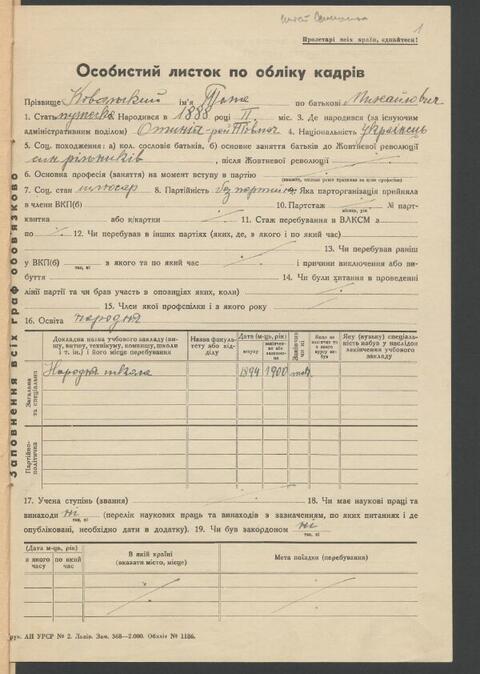 1
Пролетарі всіх країн, єднайтеся!
Особистий листок по обліку кадрів
Прізвище Ковальский ім'я по батькові Михайлович
1. Стать Народився в 1888 році II міс. 3. Де народився (за існуючим
адміністративним поділом) 4. Національність українець
5. Соц. походження: а) кол. сословіє батьків, б) основне заняття батьків до Жовтневої революції
син рільників, після Жовтневої революції
6. Основна професія (заняття) на момент вступу в партію
7. Соц. стан слюсар 8. Партійність безпартийн. Яка парторганізація прийняла
в члени ВКП(б) 10. Партстаж № парт-
місяць, рік
квитка або к/картки 11. Стаж перебування в ВЛКСМ з
по 12. Чи перебував в інших партіях (яких, де, в якого і по який час)
13. Чи перебував раніш
у ВКП(б) з якого та по який час і причини виключення або ви-
так, ні
буття 14. Чи були хитання в проведенні
лінії партії та чи брав участь в опозиціях яких, коли)
15. Член якої профспілки і з якого року
16. Освіта народня
Заповнення всіх граф обов'язково
Докладна назва учбового закладу (ви-
шу, втузу, технікуму, комвишу, школи
і т. ін.) і його місце перебування
Назва факуль-
тету або від-
ділу
Дата (м-ць, рік)
вступу
закінчен-
Закінчив
чи ні
Якщо не
закінчив то
з якого
курсу виб-
Яку (вузьку) спеціаль-
ність набув у наслідок
закінчення учбового
закладу
Загальна
та спеціальна
Народна школа 1894 1900 так
Партійно-
політична
17. Учена ступінь (звання) 18. Чи має наукові праці та
винаходи ні (перелік наукових праць та винаходів з зазначенням, по яких питаннях і де
так, ні
опубліковані, необхідно дати в додатку). 19. Чи був закордоном ні
так, ні
(Дата м-ць, рік)
з якого
часу
по який
час
В якій країні
(вказати місто, місце)
Мета поїздки (перебування)
рук. АН УРСР № 2. Львів. Зам. 368—2.000. Обліт № 1186.